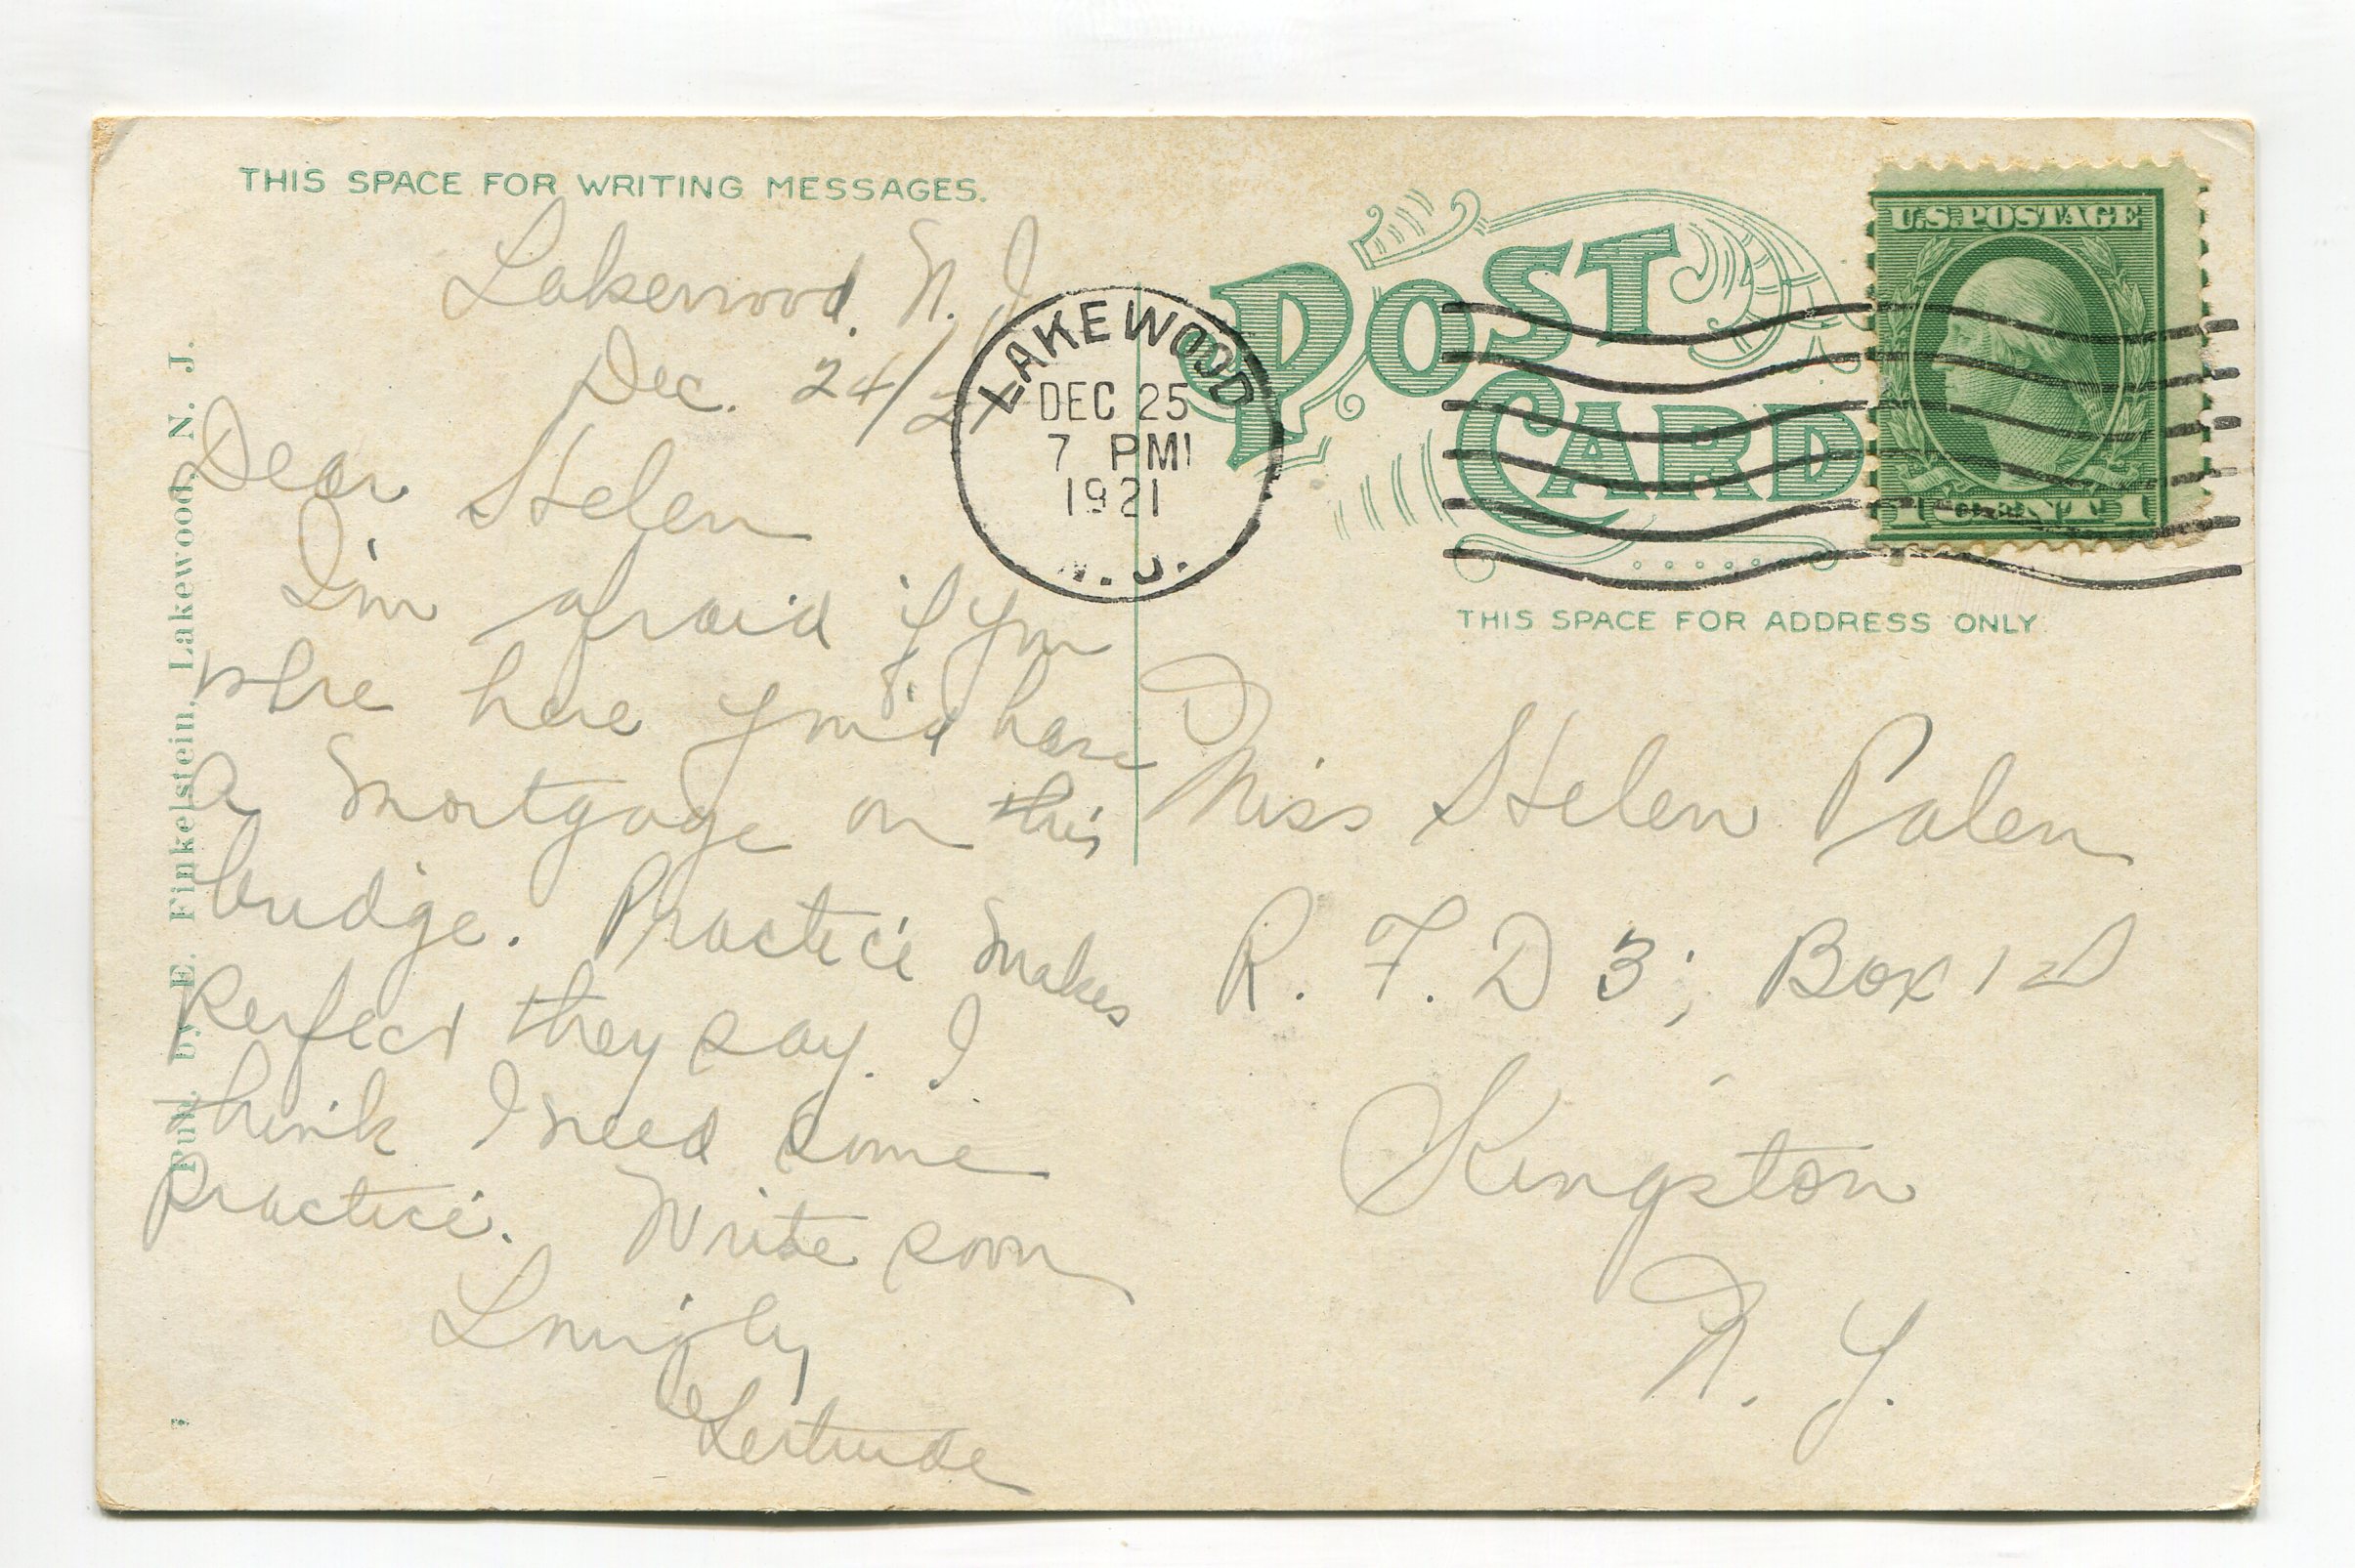 THIS SPACE FOR WRITING MESSAGES.
Lakewood, N. J.
Dec. 24/21
Dear Helen
I'm afraid if you
where here you'd have
a mortgage on this
bridge. Practice makes
perfect they say. I
think I need some
practice. Write soon
Lovingly
Gertrude
Pub. by E. Finkelstein, Lakewood, N. J.
LAKEWOOD
DEC 25
7 PM
1921
N. J.
POST
CARD
U.S. POSTAGE
1 CENT 1
THIS SPACE FOR ADDRESS ONLY
Miss Helen Palen
R. F. D 3; Box
Kingston
N. Y.